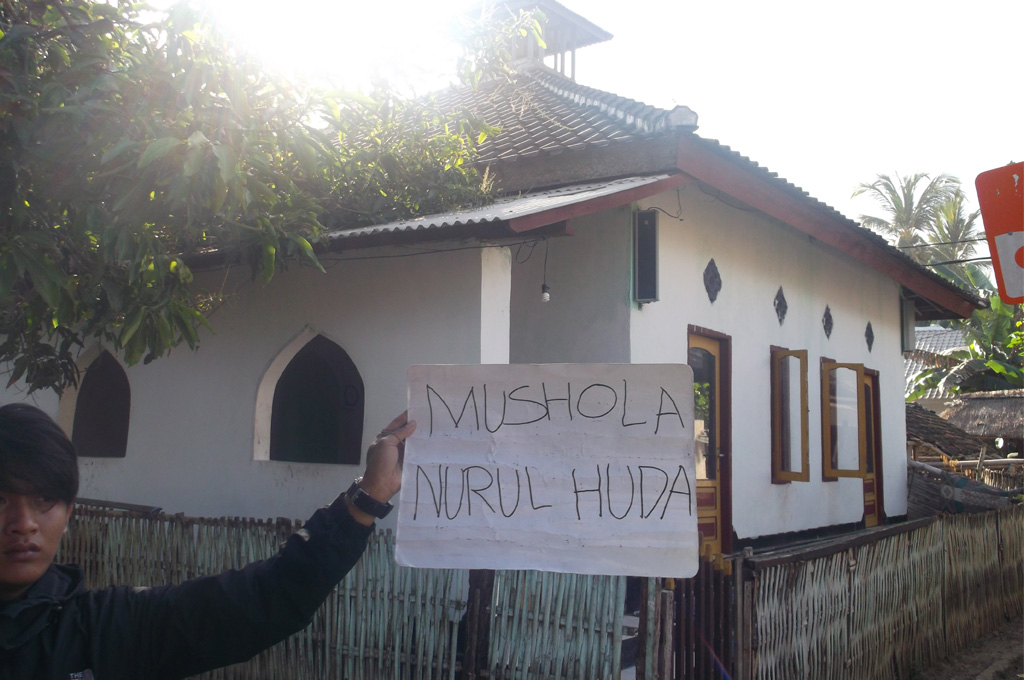 MUSHOLA
NURUL HUDA